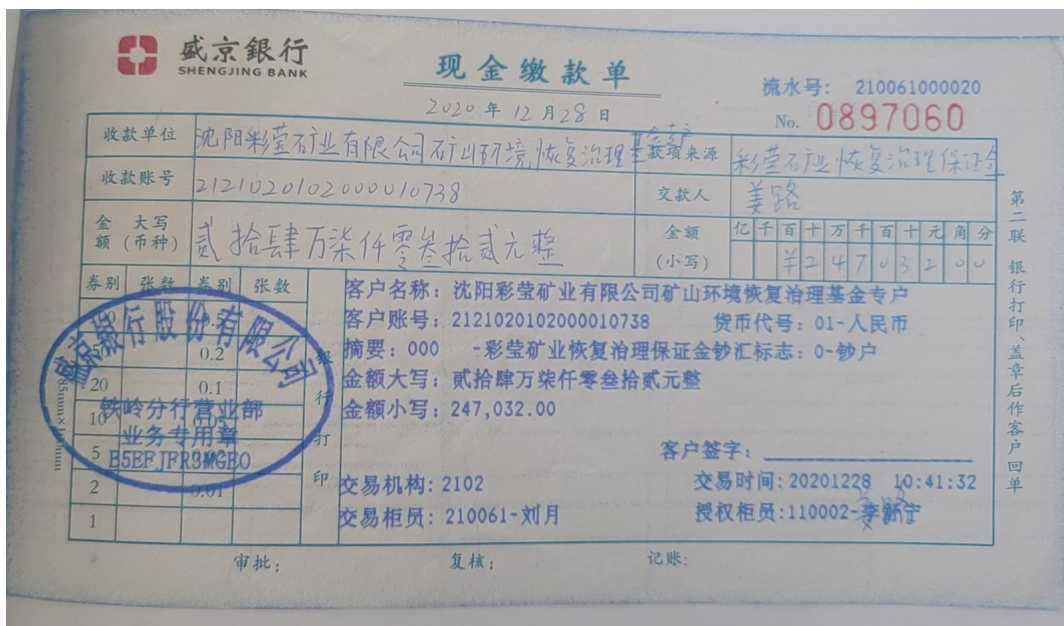 盛京銀行
SHENGJING BANK
现金缴款单
2020年12月28日
流水号: 210061000020
No. 0897060
收款单位 沈阳彩莹矿业有限公司矿山环境恢复治理基金专户 款项来源 彩莹矿业恢复治理保证金
收款账号 2121020102000010738 交款人 姜路
金额 大写(币种) 贰拾肆万柒仟零叁拾贰元整 金额(小写) 亿千百十万千百十元角分
¥24703200
券别 张数 券别 张数
0.2
20 0.1
10
5
2 0.01
1
银行打印
客户名称: 沈阳彩莹矿业有限公司矿山环境恢复治理基金专户
客户账号: 2121020102000010738 货币代号: 01-人民币
摘要: 000 -彩莹矿业恢复治理保证金钞汇标志: 0-钞户
金额大写: 贰拾肆万柒仟零叁拾贰元整
金额小写: 247,032.00
客户签字:
交易机构: 2102 交易时间: 20201228 10:41:32
交易柜员: 210061-刘月 授权柜员: 110002-
盛京银行股份有限公司
铁岭分行营业部
业务专用章
B5EFJFR9MGEO
审批: 复核: 记账:
第二联 银行打印、盖章后作客户回单